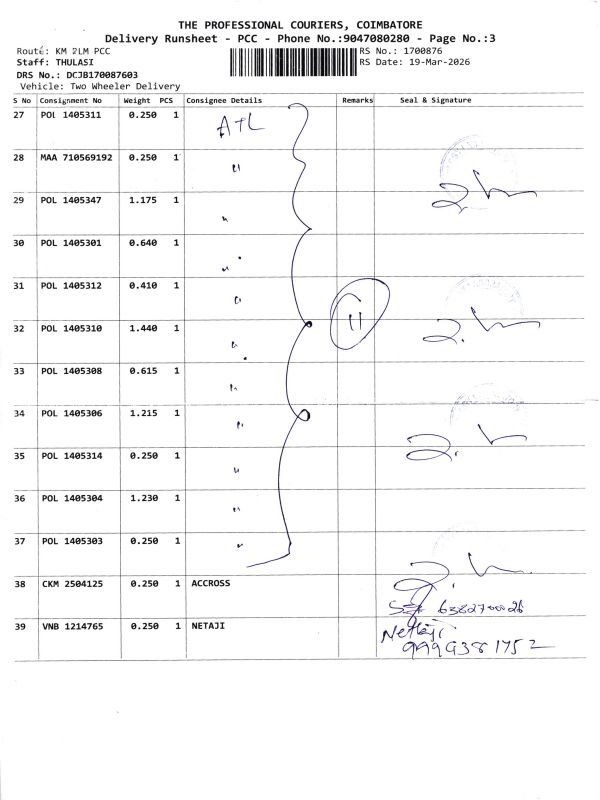 THE PROFESSIONAL COURIERS, COIMBATORE
Delivery Runsheet - PCC - Phone No.:9047080280 - Page No.:3
Route: KM 2LM PCC RS No.: 1700876
Staff: THULASI RS Date: 19-Mar-2026
DRS No.: DCJB170087603
Vehicle: Two Wheeler Delivery
S No Consignment No Weight PCS Consignee Details Remarks Seal & Signature
27 POL 1405311 0.250 1 A+L
28 MAA 710569192 0.250 1 "
29 POL 1405347 1.175 1 "
30 POL 1405301 0.640 1 "
31 POL 1405312 0.410 1 " 11
32 POL 1405310 1.440 1 "
33 POL 1405308 0.615 1 "
34 POL 1405306 1.215 1 "
35 POL 1405314 0.250 1 "
36 POL 1405304 1.230 1 "
37 POL 1405303 0.250 1 "
38 CKM 2504125 0.250 1 ACCROSS
39 VNB 1214765 0.250 1 NETAJI Netaji